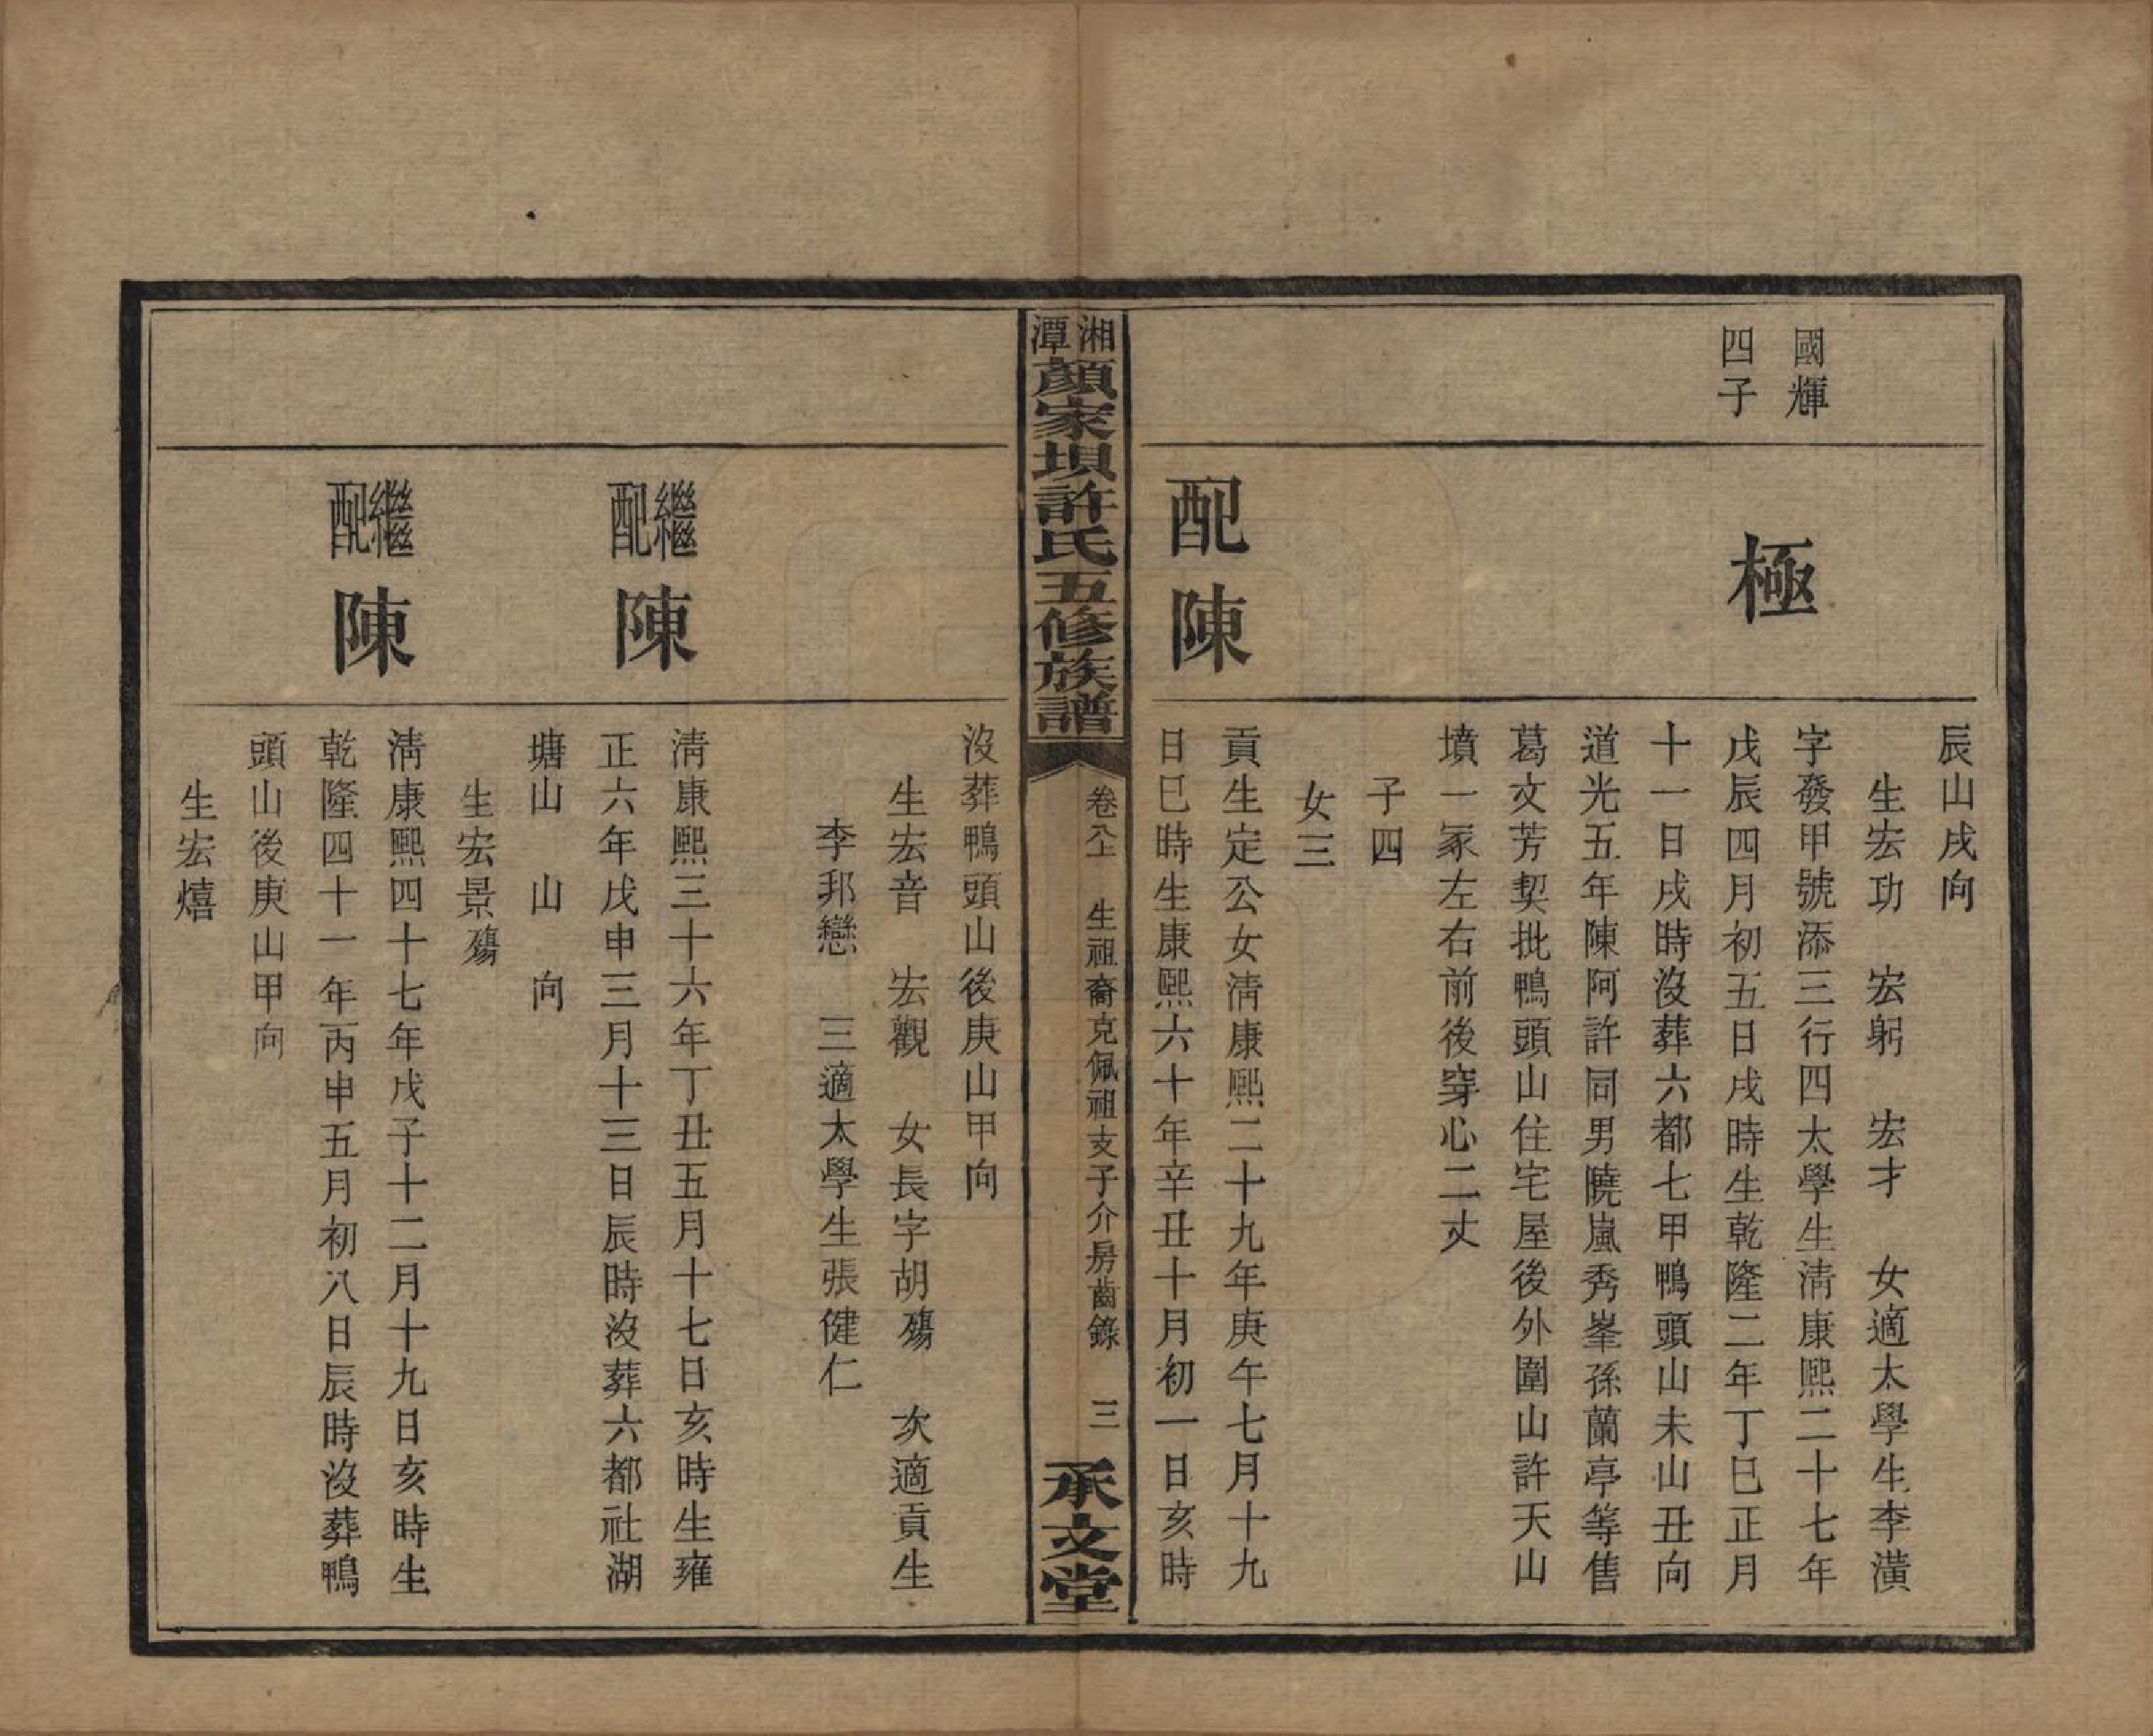 辰山戌向
生宏功　宏躬　宏才　女適太學生李潢
國輝
四子
極
字發甲號添三行四太學生清康熙二十七年
戊辰四月初五日戌時生乾隆二年丁巳正月
十一日戌時沒葬六都七甲鴨頭山未山丑向
道光五年陳阿許同男曉嵐秀峯孫蘭亭等售
葛文芳契批鴨頭山住宅屋後外圍山許天山
墳一冢左右前後穿心二丈
子四
女三
配陳
貢生定公女清康熙二十九年庚午七月十九
日巳時生康熙六十年辛丑十月初一日亥時
湘潭顏家垻許氏五修族譜
卷　生祖裔克佩祖支子介房齒錄　三
承文堂
沒葬鴨頭山後庚山甲向
生宏音　宏觀　女長字胡殤　次適貢生
李邦戀　三適太學生張健仁
繼配陳
清康熙三十六年丁丑五月十七日亥時生雍
正六年戊申三月十三日辰時沒葬六都社湖
塘山　山　向
生宏景殤
繼配陳
清康熙四十七年戊子十二月十九日亥時生
乾隆四十一年丙申五月初八日辰時沒葬鴨
頭山後庚山甲向
生宏熺